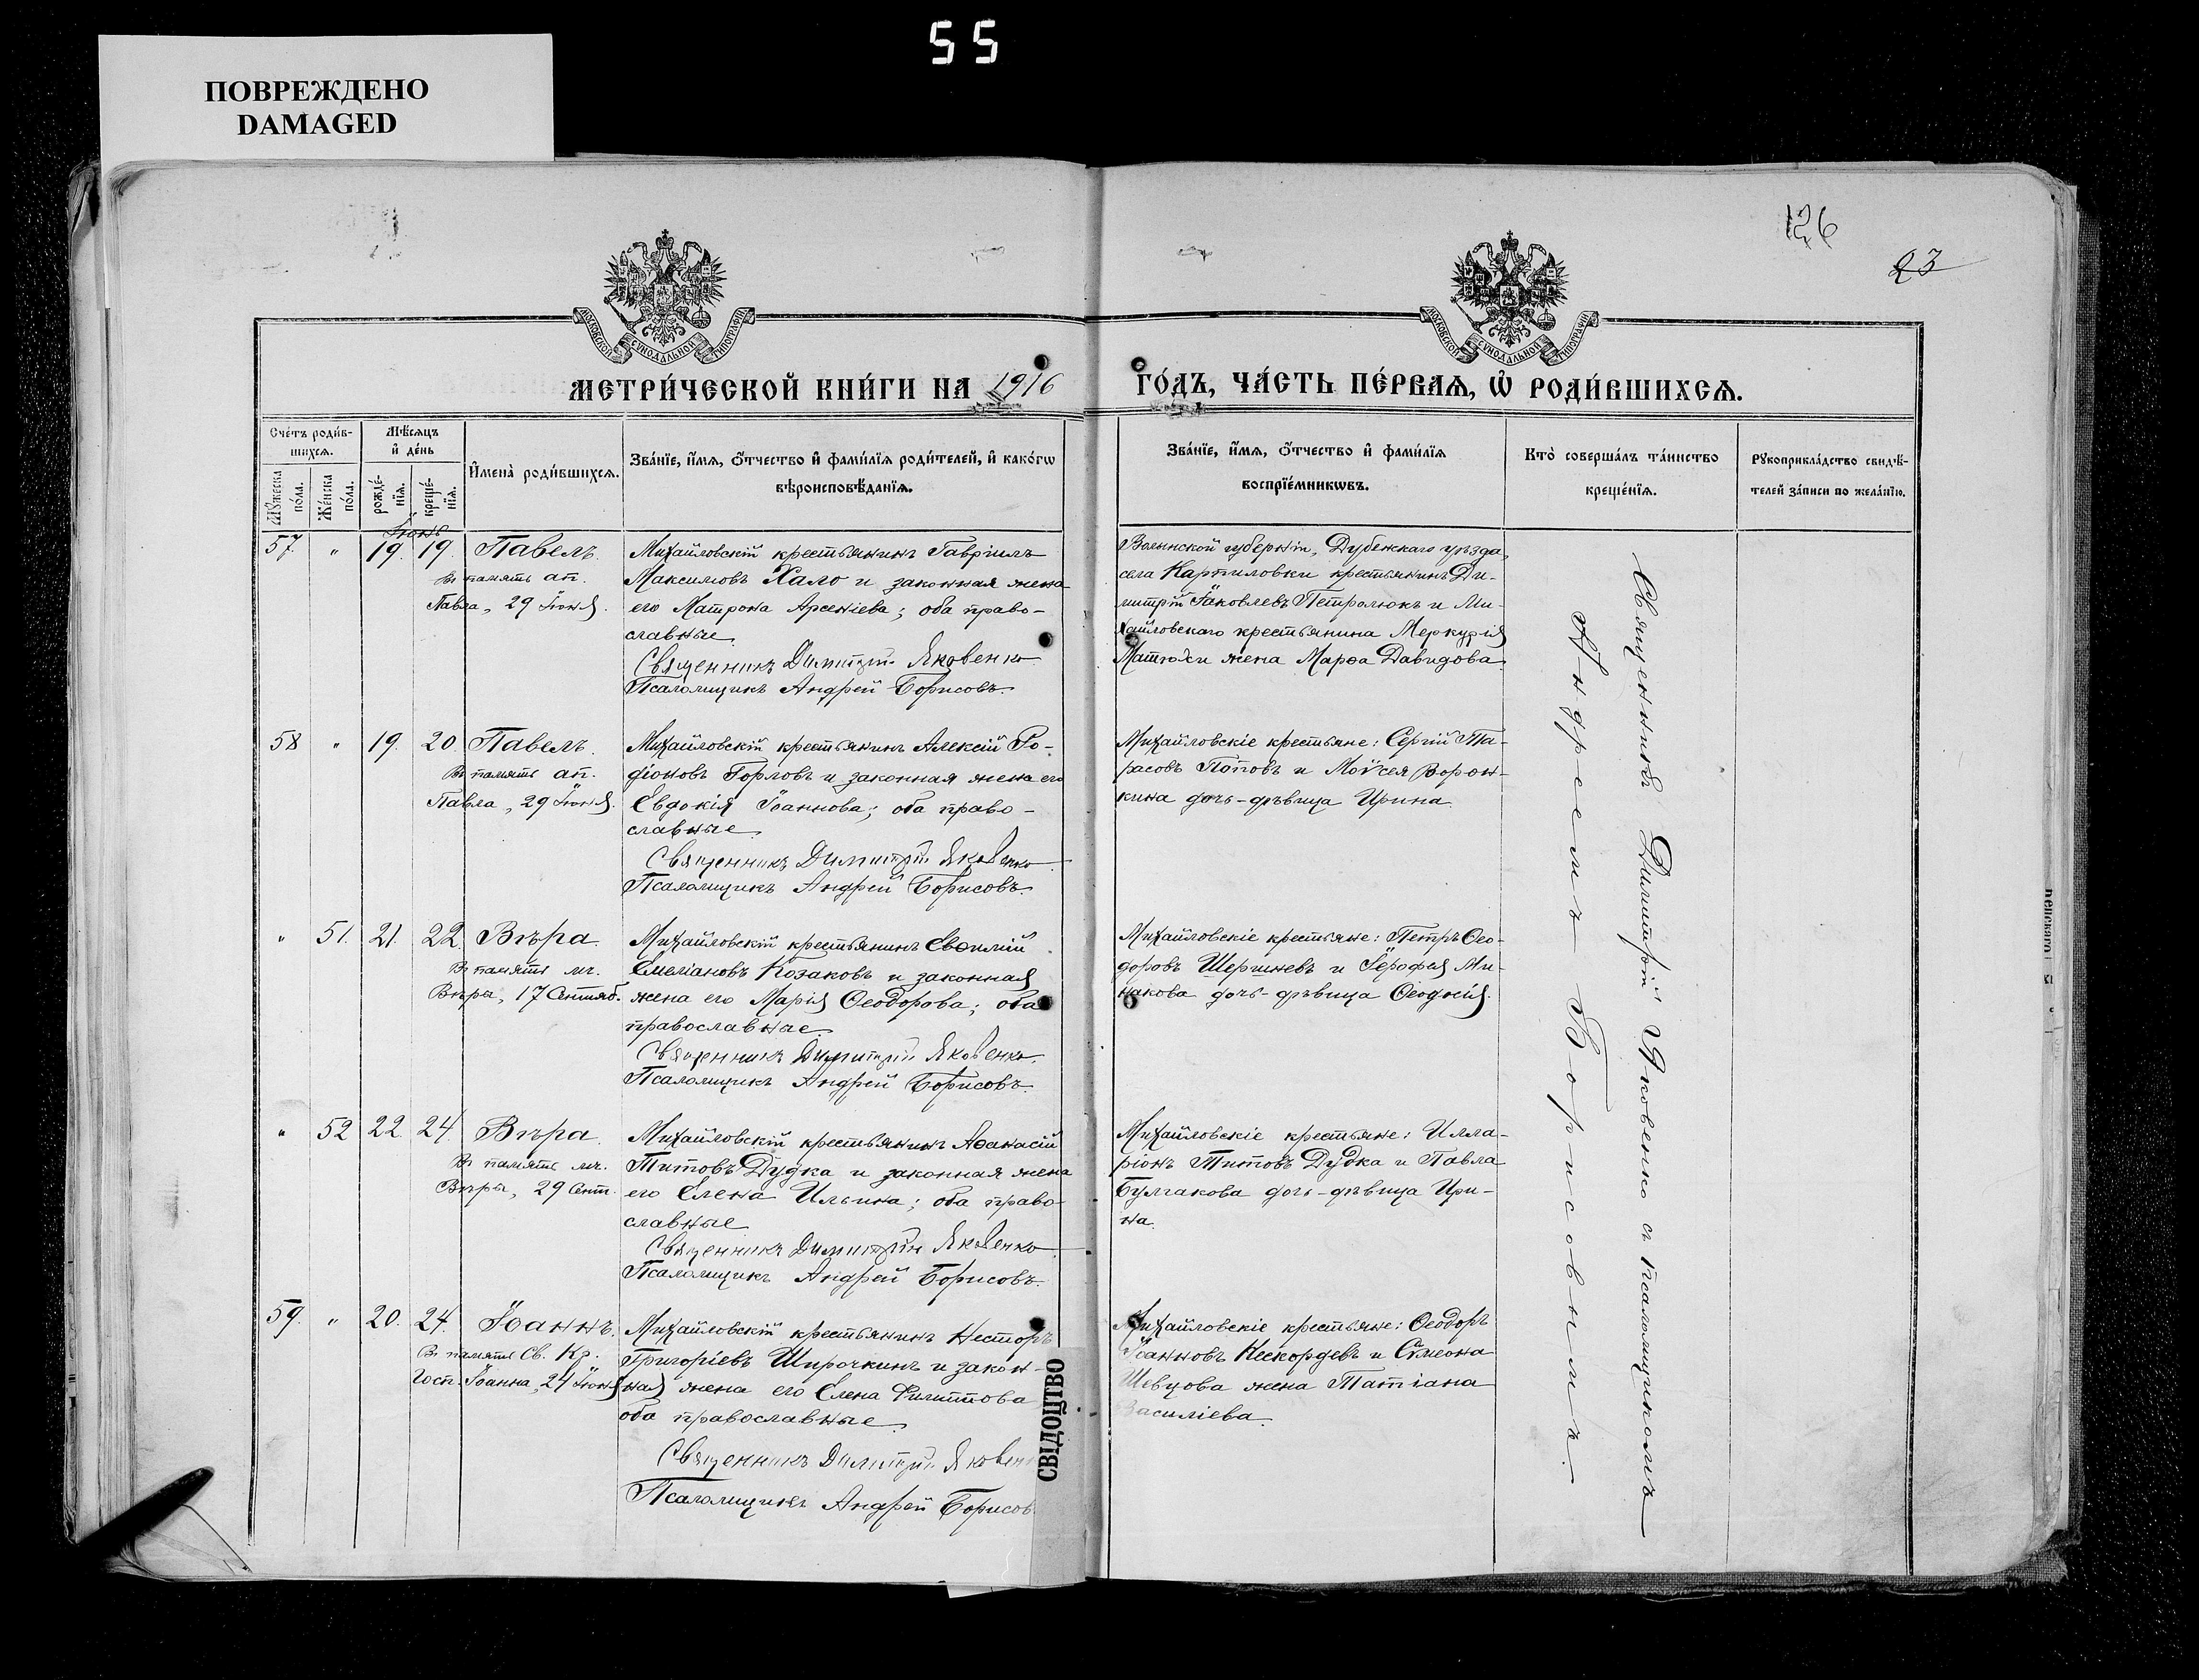 55
ПОВРЕЖДЕНО
DAMAGED
126
23
МОСКОВСКОЙ СѴНОДАЛЬНОЙ ТИПОГРАФІИ
МОСКОВСКОЙ СѴНОДАЛЬНОЙ ТИПОГРАФІИ
МЕТРИ́ЧЕСКОЙ КНИ́ГИ НА 1916
ГО́ДЪ, ЧА́СТЬ ПЕ́РВАѦ, Ѡ҆ РОДИ́ВШИХСѦ.
Сче́тъ роди́в-
шихсѧ.
Мꙋ́жеска
по́ла.
Же́нска
по́ла.
Мѣ́сѧцъ
и҆ де́нь
рожде́-
нїѧ.
креще́-
нїѧ.
И҆мена̀ роди́вшихсѧ.
Зва́нїе, и҆́мѧ, ѻ҆́тчество и҆ фами́лїѧ роди́телей, и҆ како́гѡ
вѣроисповѣ́данїѧ.
Зва́нїе, и҆́мѧ, ѻ҆́тчество и҆ фами́лїѧ
воспрїе́мникѡвъ.
Кто̀ соверша́лъ та́инство
креще́нїѧ.
Рꙋкоприкла́дство свидѣ́-
телей за́писи по жела́нїю.
Іюнь
57. " 19. 19. Павелъ.
Въ память ап.
Павла, 29 Іюня.
Михайловскій крестьянинъ Гавріилъ
Максимовъ Хало и законная жена
его Матрона Арсеніева; оба право-
славные.
Священникъ Димитрій Яковенко
Псаломщикъ Андрей Борисовъ.
Волынской губерніи, Дубенскаго уѣзда,
села Карпиловки крестьянинъ Ди-
митрій Іаковлевъ Петролюкъ и Ми-
хайловскаго крестьянина Меркурія
Матюхи жена Марѳа Давидова.
58 " 19. 20. Павелъ.
Въ память ап.
Павла, 29 Іюня.
Михайловскій крестьянинъ Алексій Ро-
діоновъ Горловъ и законная жена его
Евдокія Іоаннова; оба право-
славные.
Священникъ Димитрій Яковенко
Псаломщикъ Андрей Борисовъ.
Михайловскіе крестьяне: Сергій Та-
расовъ Поповъ и Моѵсея Ворон-
кина дочь-дѣвица Ирина.
" 51. 21. 22. Вѣра.
Въ память мч.
Вѣры, 17 Сентяб.
Михайловскій крестьянинъ Евѳимій
Емеліановъ Козаковъ и законная
жена его Марія Ѳеодорова; оба
православные.
Священникъ Димитрій Яковенко.
Псаломщикъ Андрей Борисовъ.
Михайловскіе крестьяне: Петръ Ѳео-
доровъ Шершневъ и Іероѳея Ми-
накова дочь-дѣвица Ѳеодосія.
" 52 22. 24. Вѣра.
Въ память мч.
Вѣры, 29 Сент.
Михайловскій крестьянинъ Аѳанасій
Титовъ Дудка и законная жена
его Елена Ильина; оба право-
славные
Священникъ Димитрій Яковенко
Псаломщикъ Андрей Борисовъ.
Михайловскіе крестьяне: Илла-
ріонъ Титовъ Дудка и Павла
Булгакова дочь-дѣвица Ири-
на.
59. " 20. 24. Іоаннъ.
Въ память Св. Кр.
Госп. Іоанна, 24 Іюня
Михайловскій крестьянинъ Несторъ
Григоріевъ Широчкинъ и закон-
ная жена его Елена Филиппова
оба православные.
Священникъ Димитрій Яковен
Псаломщикъ Андрей Борисов
Михайловскіе крестьяне: Ѳеодоръ
Іоанновъ Нескордевъ и Сѵмеона
Шевцова жена Татіана
Василіева.
Священникъ Димитрій Яковенко съ псаломщикомъ
Андреемъ Борисовымъ.
СВІДОЦТВО